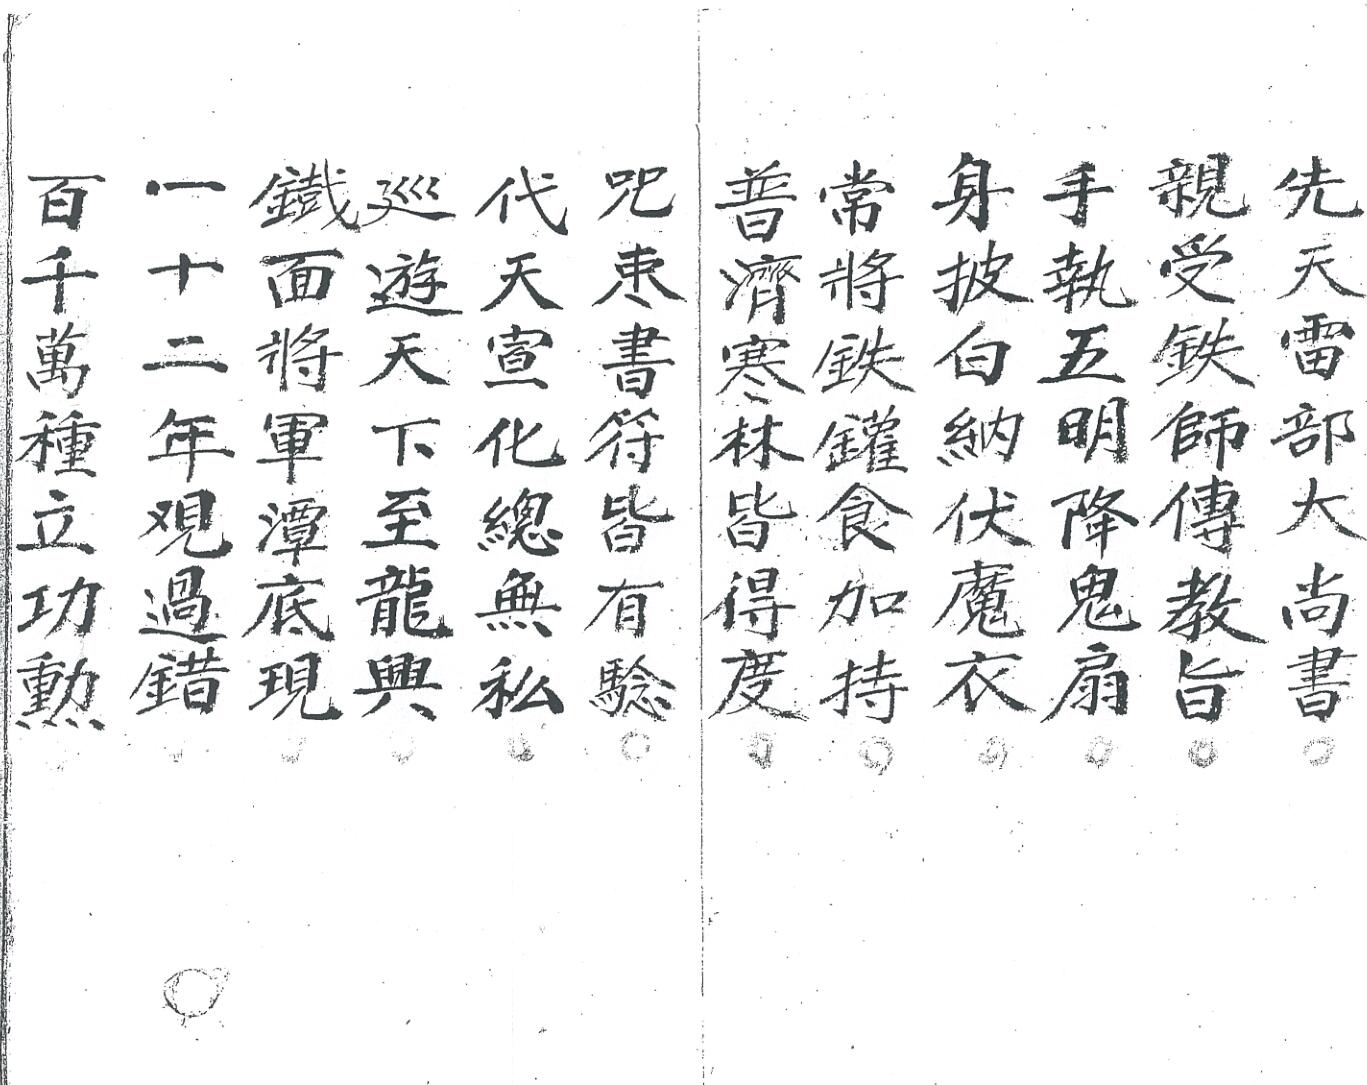 先天雷部大尚書
親受鉄師傳教旨
手執五明降鬼扇
身披白納伏魔衣
常將鉄鑵食加持
普濟寒林皆得度
咒枣書符皆有驗
代天宣化總無私
巡遊天下至龍興
鐵面將軍潭底現
一十二年观過錯
百千萬種立功勲